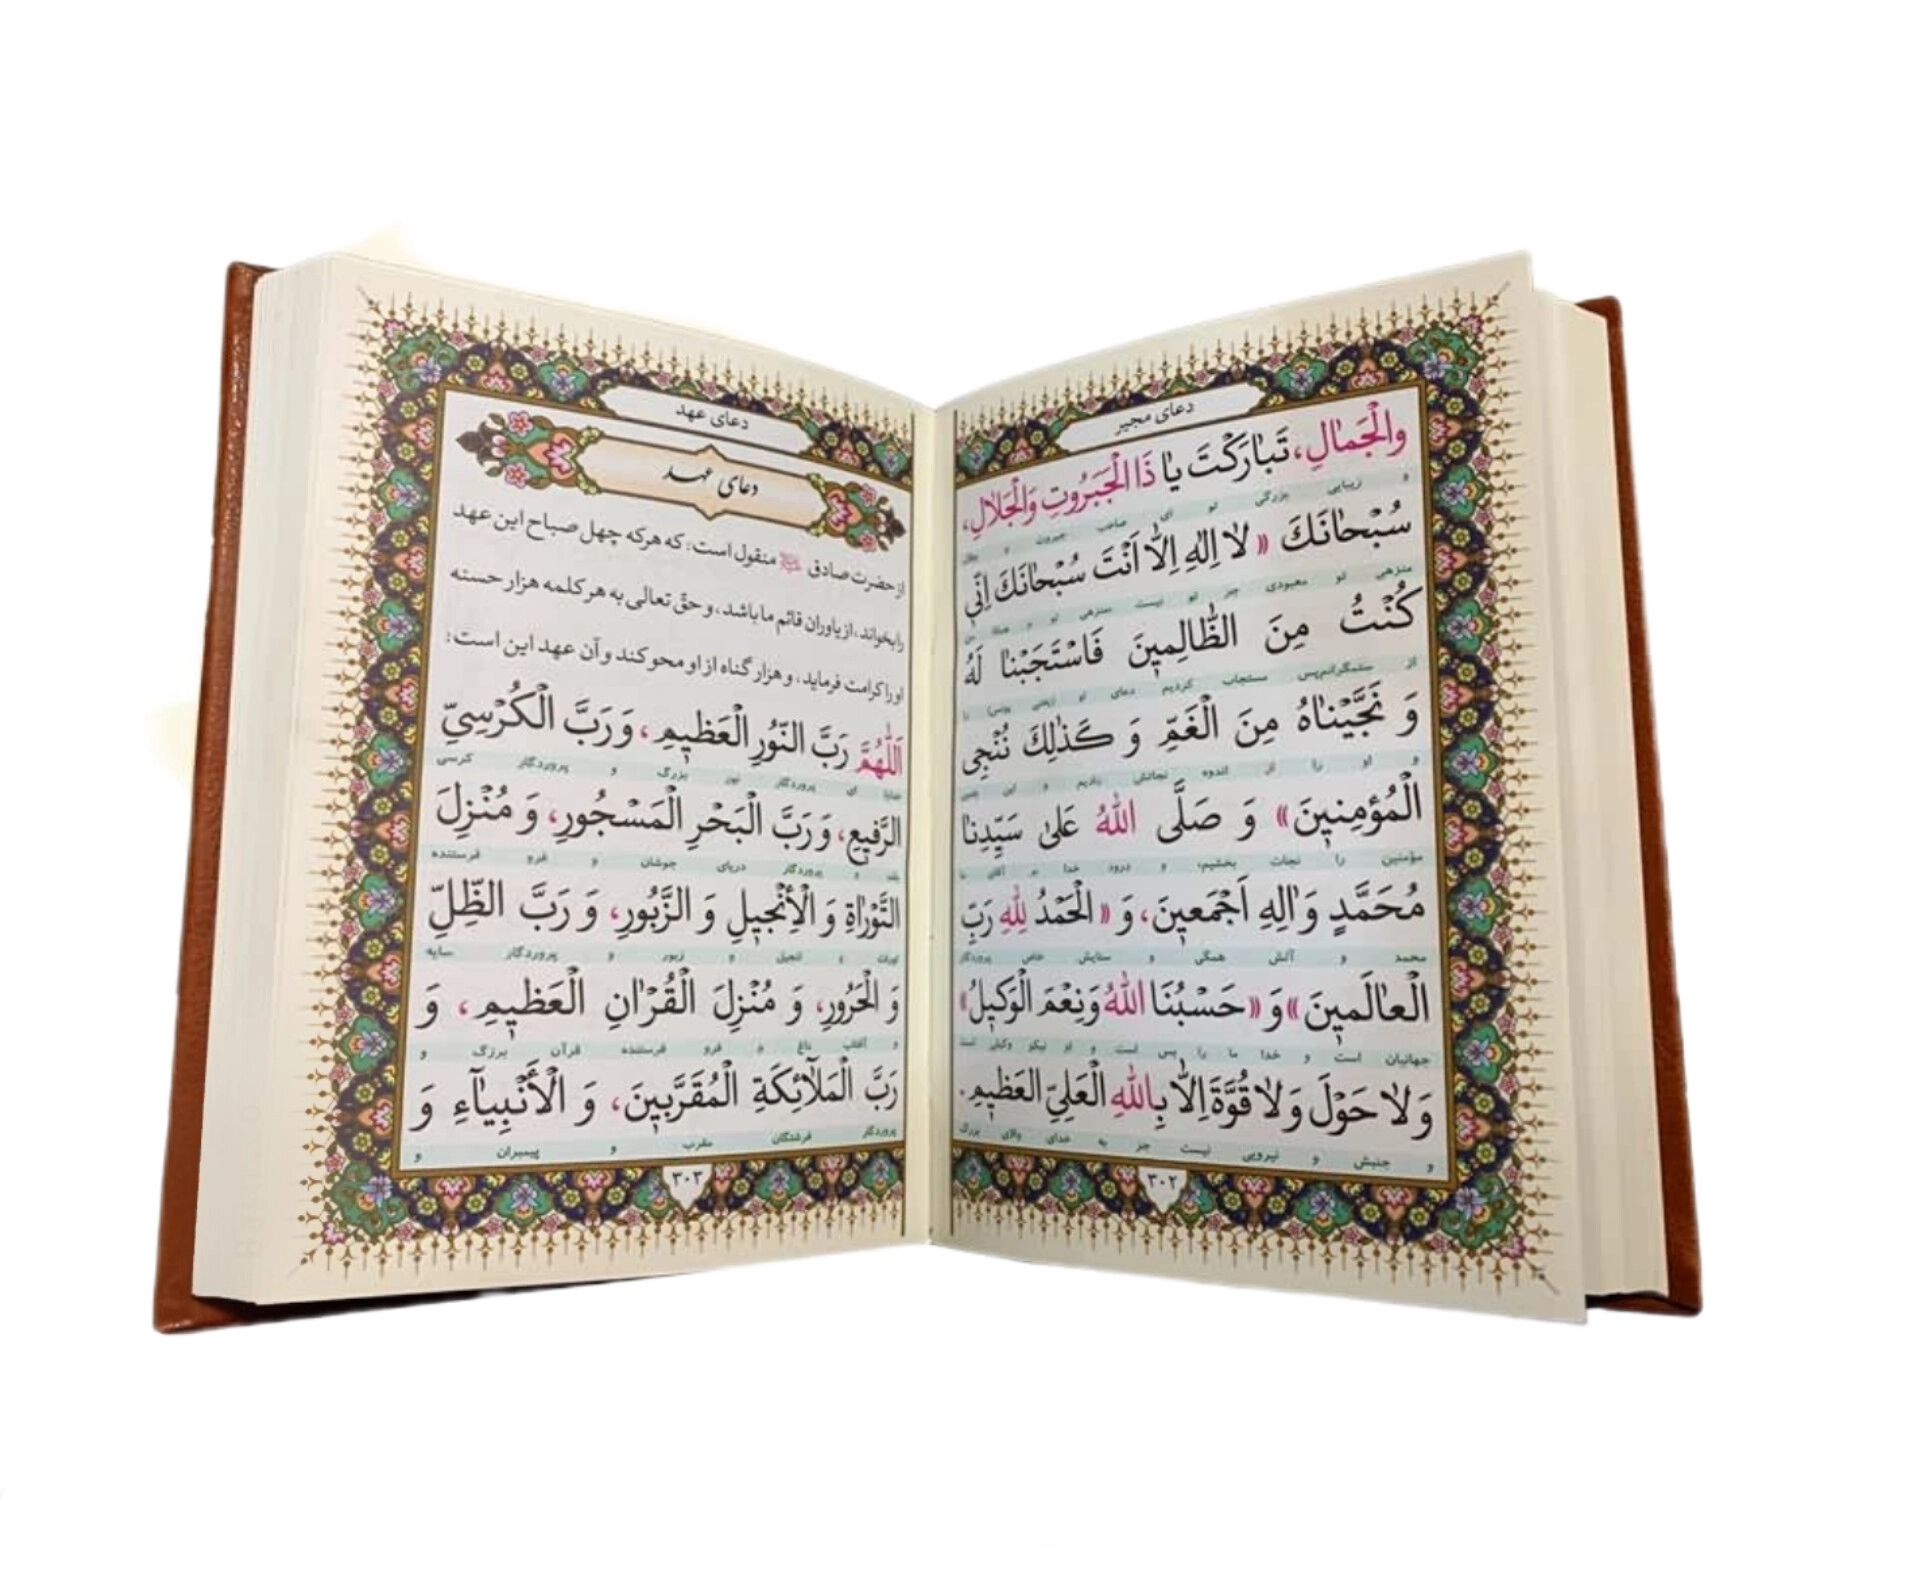 دعای مجیر
والْجَمالِ، تَبارَكْتَ يا ذَا الْجَبَرُوتِ وَالْجَلالِ،
و زیبایی بزرگی تو ای صاحب جبروت و جلال
سُبْحانَكَ «لا اِلٰهَ اِلاّ اَنْتَ سُبْحانَكَ اِنّى
منزهی تو معبودی جز تو نیست منزهی تو و همانا من
كُنْتُ مِنَ الظّالِمينَ فَاسْتَجَبْنا لَهُ
از ستمگرانم‌پس مستجاب کردیم دعای او (یعنی یونس) را
وَ نَجَّيْناهُ مِنَ الْغَمِّ وَ كَذٰلِكَ نُنْجِى
و او را از اندوه نجاتش دادیم و این چنین
الْمُؤمِنينَ» وَ صَلَّى اللهُ عَلىٰ سَيِّدِنا
مؤمنین را نجات بخشیم، و درود خدا بر آقای ما
مُحَمَّدٍ وَ اٰلِهِ اَجْمَعينَ، وَ «الْحَمْدُ لِلّٰهِ رَبِّ
محمد و آلش همگی و ستایش خاص پروردگار
الْعالَمينَ» وَ «حَسْبُنَا اللهُ وَنِعْمَ الْوَكيلُ»
جهانیان است و خدا ما را بس است و او نیکو وکیلی است
وَ لا حَوْلَ وَ لا قُوَّةَ اِلاّ بِاللهِ الْعَلِىِّ الْعَظيمِ.
و جنبش و نیرویی نیست جز به خدای والای بزرگ
۳۰۲
دعای عهد
دعای عهد
از حضرت صادق منقول است: که هرکه چهل صباح این عهد
را بخواند، از یاوران قائم ما باشد، و حقّ تعالی به هر کلمه هزار حسنه
او را کرامت فرماید، و هزار گناه از او محو کند و آن عهد این است:
اَللّٰهُمَّ رَبَّ النّوُرِ الْعَظيمِ، وَ رَبَّ الْكُرْسِىِّ
خدایا ای پروردگار نور بزرگ و پروردگار کرسی
الرَّفيعِ، وَ رَبَّ الْبَحْرِ الْمَسْجُورِ، وَ مُنْزِلَ
بلند و پروردگار دریای جوشان و فرو فرستنده
التَّوْراةِ وَ الْأِنْجيلِ وَ الزَّبُورِ، وَ رَبَّ الظِّلِّ
تورات و انجیل و زبور و پروردگار سایه
وَ الْحَرُورِ، وَ مُنْزِلَ الْقُرْانِ الْعَظيمِ، وَ
و آفتاب داغ و فرو فرستنده قرآن بزرگ و
رَبَّ الْمَلآئِكَةِ الْمُقَرَّبينَ، وَ الْأَنْبِيآءِ وَ
پروردگار فرشتگان مقرب و پیمبران و
۳۰۳